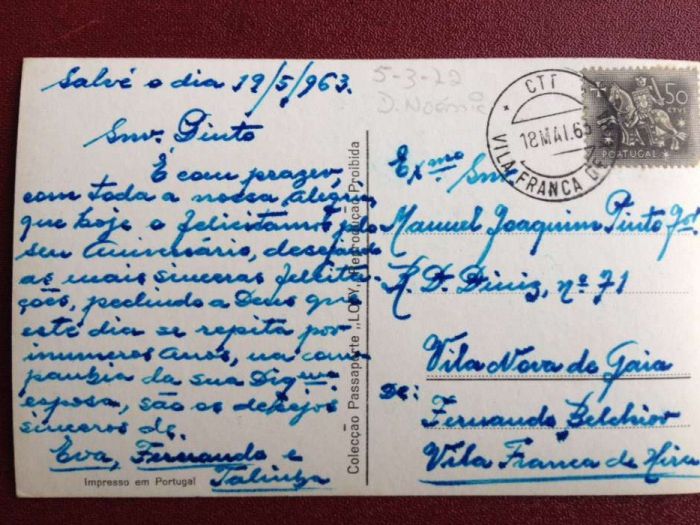 Salvé o dia 19/5/963.
Snr. Pinto
É com prazer,
com toda a nossa alegria,
que hoje o felicitamos pelo
seu aniversário, desejando
as mais sinceras felicita-
ções, pedindo a Deus que
este dia se repita por
inumeros anos, na com-
panhia da sua Digma
esposa, são os desejos
sinceros de
Eva, Fernando e
Talinha
Impresso em Portugal
Colecção Passaporte „LOTY„ Reprodução Proibida
5-3-22
D. Noémia
CTT
18 MAI. 63
VILA FRANCA DE
$50
PORTUGAL
Exmo Snr.
Manuel Joaquim Pinto
R. D. Diniz, nº 71
Vila Nova de Gaia
De:
Fernando Belchior
Vila Franca de Xira